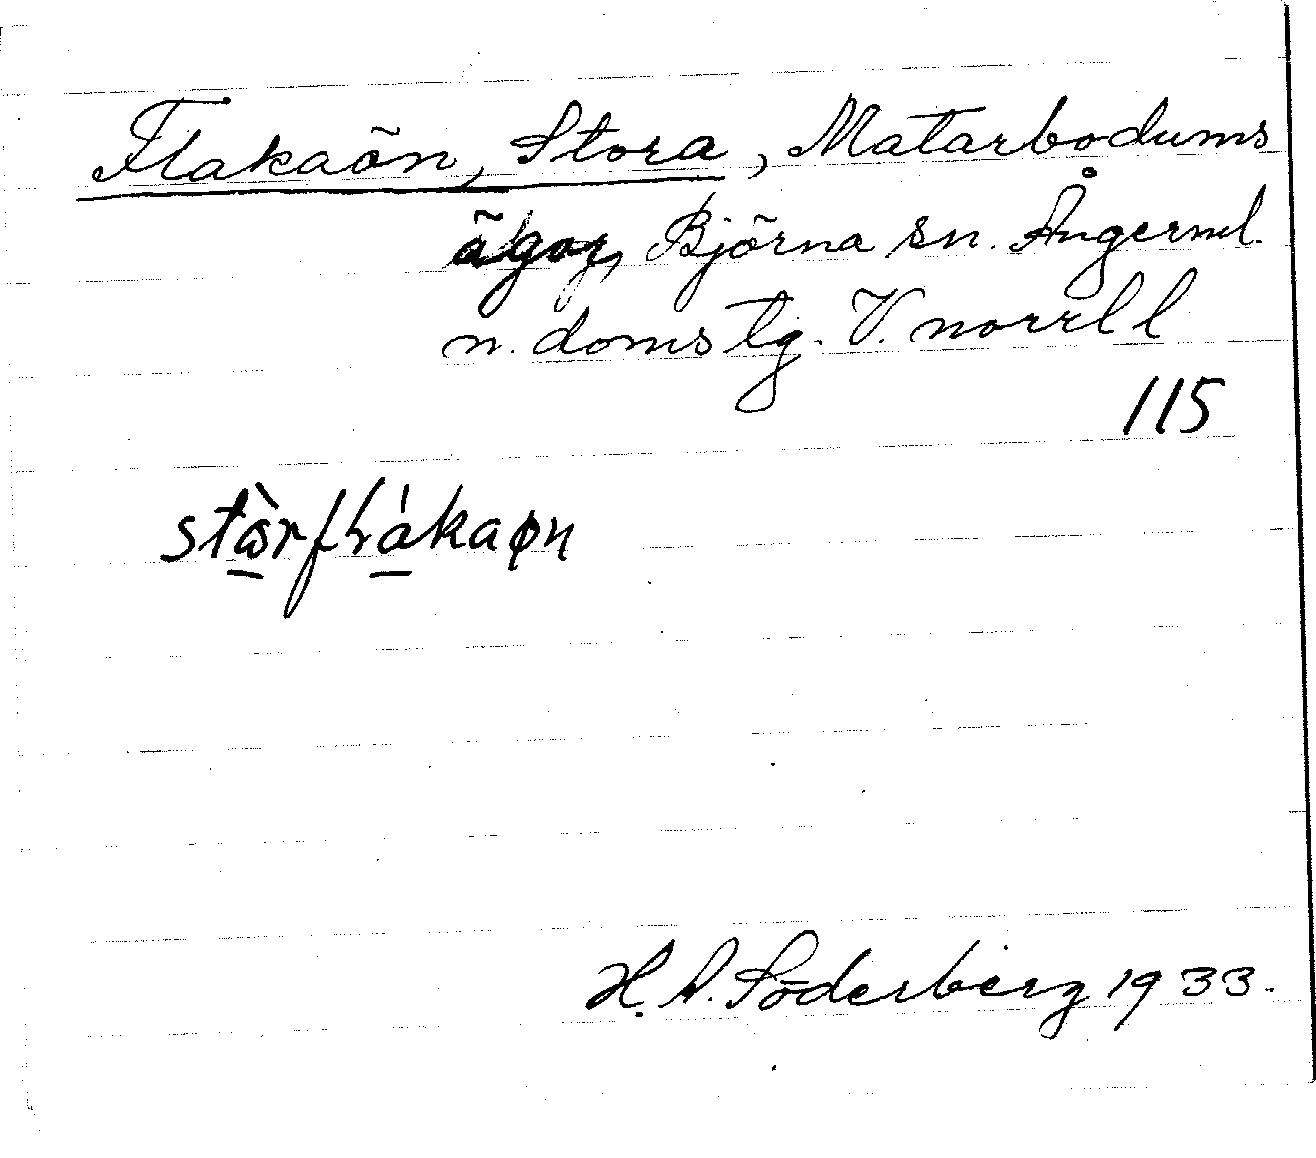 Flakaön, Stora, Matarbodums
ägor, Björna sn. Ångerml.
n. doms lg. V. norrl l
115
stòrfłákaøn
H. A. Söderberg 1933.